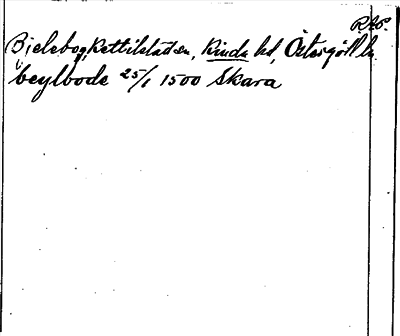 RAP.
Bjelebo, Kettilstaden, Kinda hd, Östergötl l.
i beylbode 25/1 1500 Skara